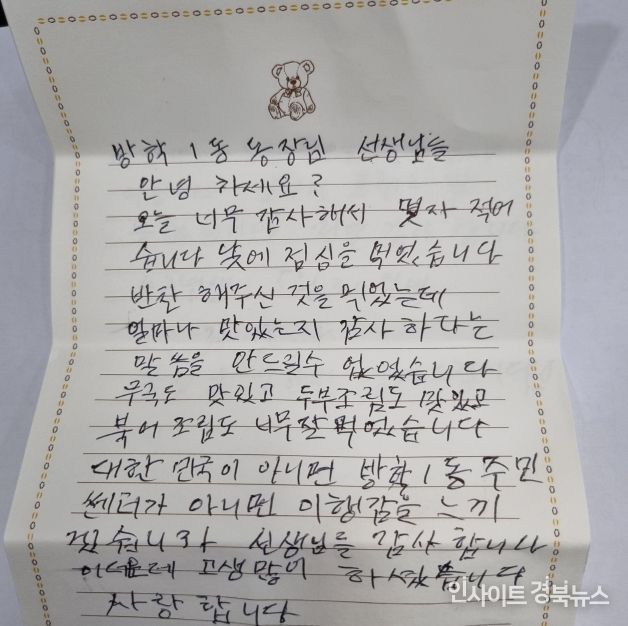 방학 1동 동장님 선생님들
안녕 하세요?
오늘 너무 감사해서 몇자 적어
습니다 낮에 점심을 먹었습니다
반찬 해주신 것을 먹었는데
얼마나 맛있는지 감사 하다는
말씀을 안드릴수 없었습니다
무국도 맛있고 두부조림도 맛있고
북어 조림도 너무잘 먹었습니다
대한 민국이 아니면 방학1동주민
쎈터가 아니면 이행감을 느끼
겠습니까 선생님들 감사 합니다
고생많이 하셨습니다
사랑 합니다
인사이트 경북뉴스